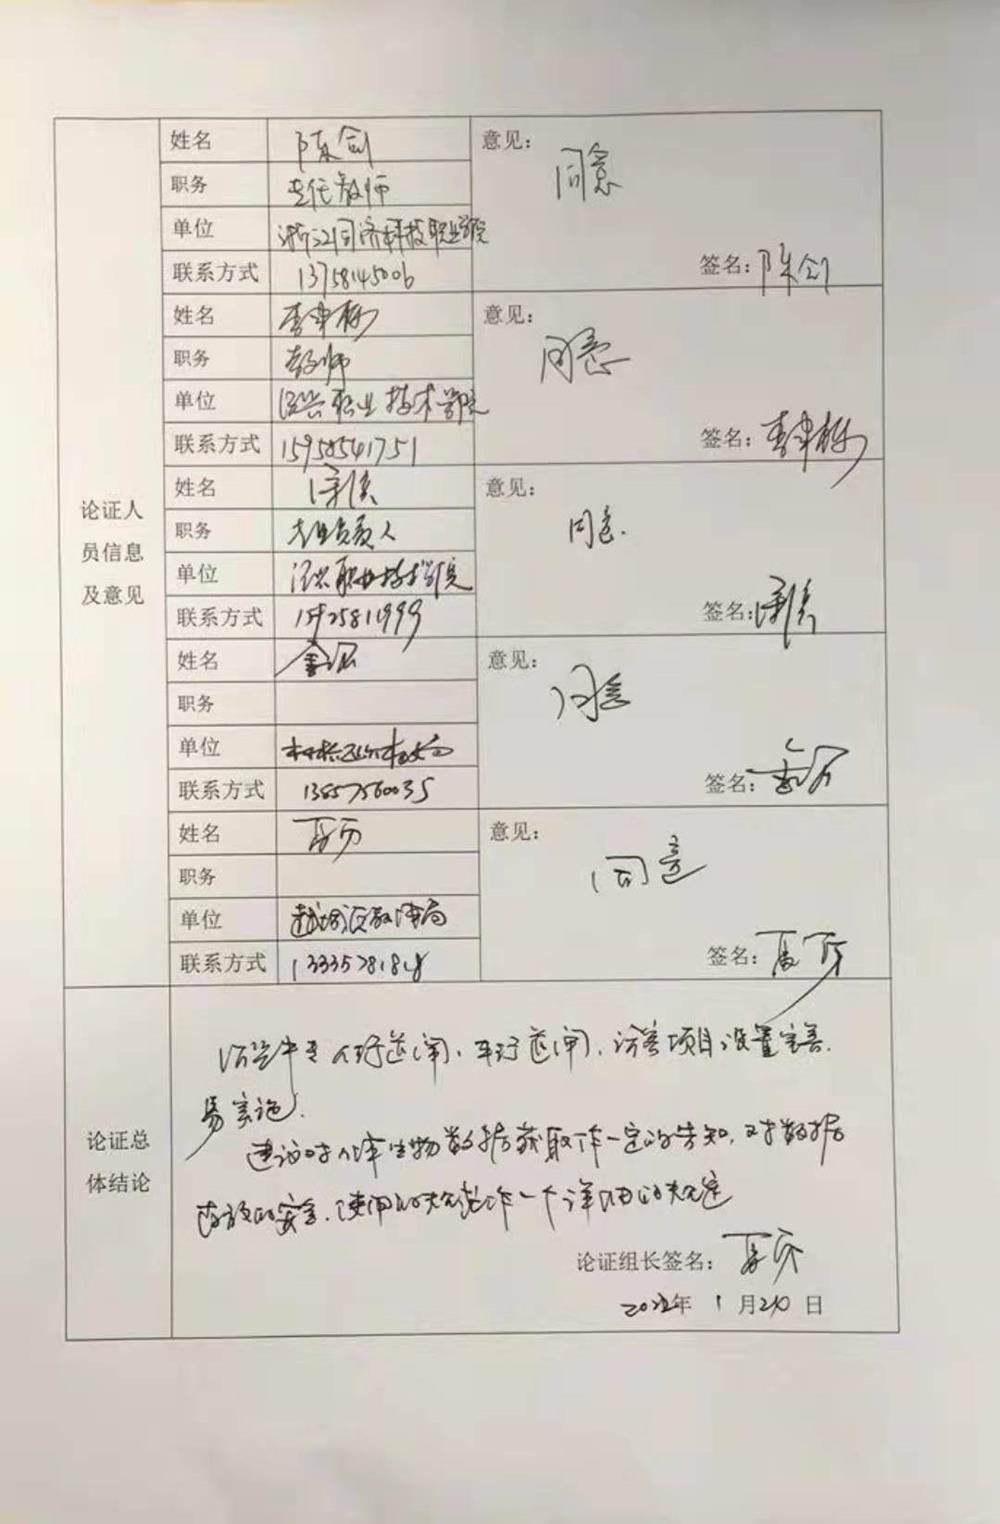 论证人
员信息
及意见
姓名 陈剑
职务 专任教师
单位 浙江同济科技职业学院
联系方式 13758145006
意见：
同意
签名：陈剑
姓名
职务 教师
单位 绍兴职业技术学院
联系方式 15958541751
意见：
同意
签名：
姓名
职务 专业负责人
单位 绍兴职业技术学院
联系方式 15925811999
意见：
同意
签名：
姓名
职务
单位
联系方式 13857560035
意见：
同意
签名：
姓名
职务
单位 越城区教体局
联系方式 13335781818
意见：
同意
签名：
论证总
体结论
绍兴中专人行道闸、车行道闸、访客项目设置完善.
易实施.
建议对人体生物数据获取作一定的告知，对数据
存放的安全、使用的规范作一个详细的规定
论证组长签名：
2022年 1 月 20 日